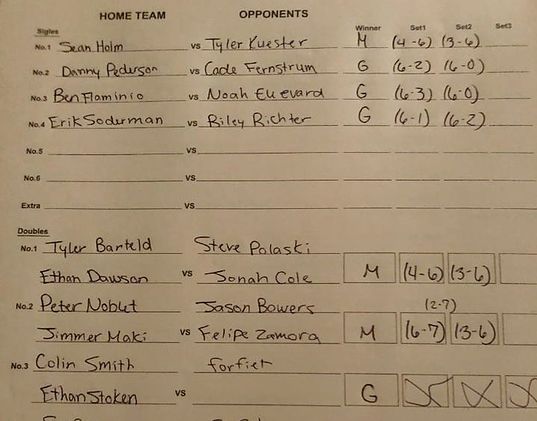 HOME TEAM OPPONENTS
Sigles Winner Set1 Set2 Set3
No.1 Sean Holm vs Tyler Kuester M (4-6) (3-6)
No.2 Danny Pederson vs Cade Fernstrum G (6-2) (6-0)
No.3 Ben Flaminio vs Noah Euevard G (6-3) (6-0)
No.4 Erik Soderman vs Riley Richter G (6-1) (6-2)
No.5 vs
No.6 vs
Extra vs
Doubles
No.1 Tyler Barteld Steve Polaski
Ethan Dawson vs Jonah Cole M (4-6) (3-6)
No.2 Peter Nobut Jason Bowers (2-7)
Jimmer Maki vs Felipe Zamora M (6-7) (3-6)
No.3 Colin Smith forfiet
Ethan Stoken vs G X X X